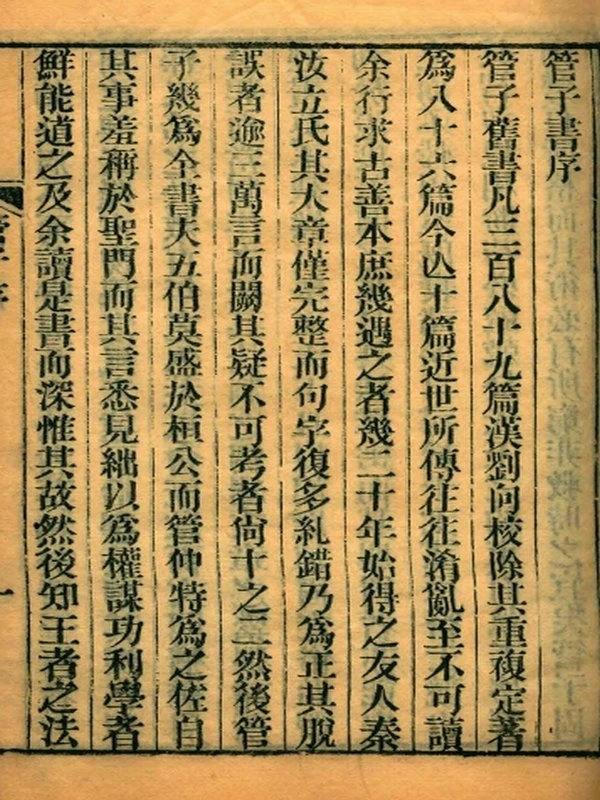 管子書序
管子舊書凡三百八十九篇漢劉向校除其重複定著
爲八十六篇今亾十篇近世所傳往往淆亂至不可讀
余行求古善本庶幾遇之者幾二十年始得之友人秦
汝立氏其大章僅完整而句字復多糺錯乃爲正其脫
誤者逾三萬言而闕其疑不可考者尙十之二然後管
子幾爲全書夫五伯莫盛於桓公而管仲特爲之佐自
其事羞稱於聖門而其言悉見絀以爲權謀功利學者
鮮能道之及余讀是書而深惟其故然後知王者之法